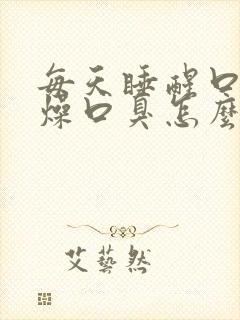 每天睡醒口
燥口臭怎麼
艾藝然